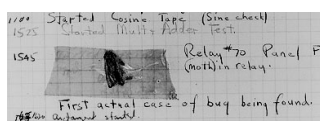 1100 Started Cosine Tape (Sine check)
1525 Started Multy Adder Test.
1545 Relay #70 Panel F
(moth) in relay.
First actual case of bug being found.
started.